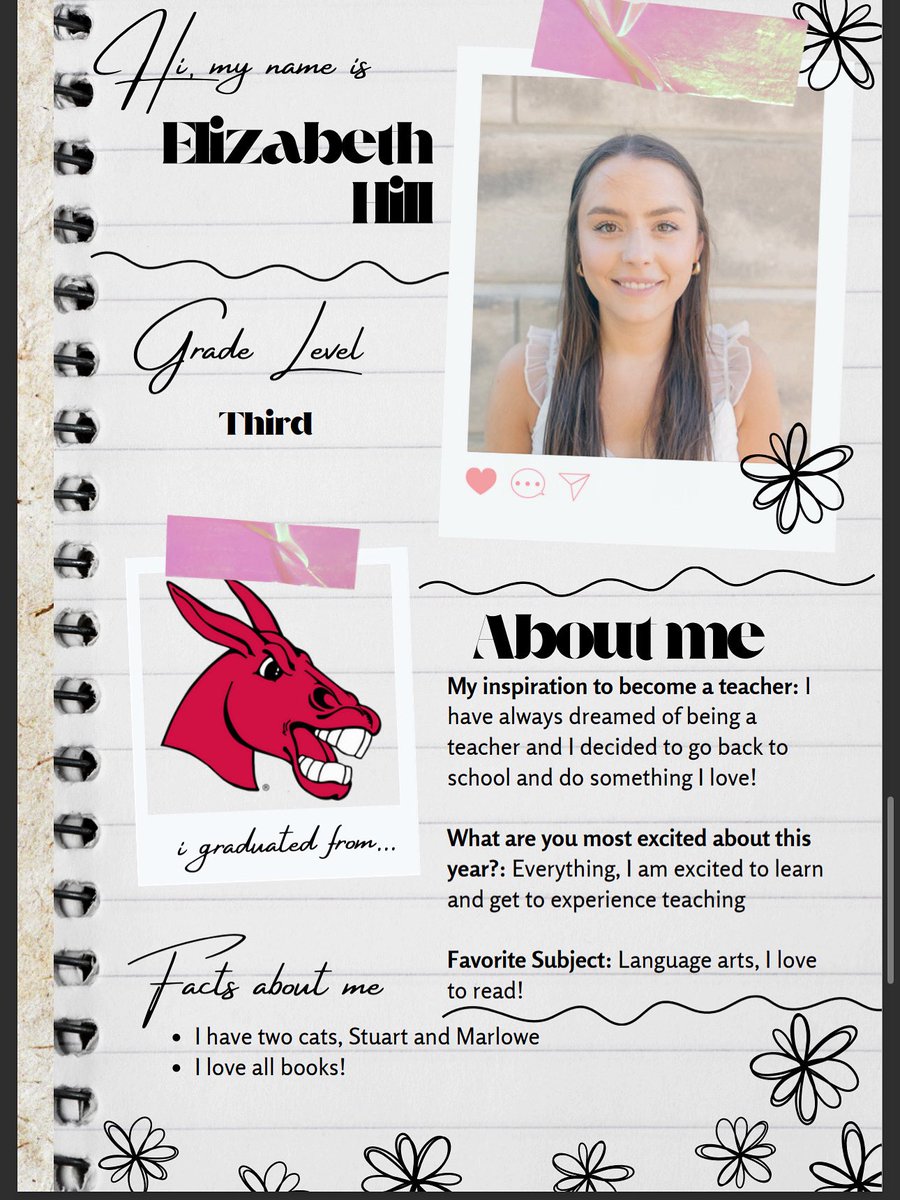 Hi, my name is
Elizabeth
Hill
Grade Level
Third
i graduated from...
About me
My inspiration to become a teacher: I
have always dreamed of being a
teacher and I decided to go back to
school and do something I love!
What are you most excited about this
year?: Everything, I am excited to learn
and get to experience teaching
Favorite Subject: Language arts, I love
to read!
Facts about me
• I have two cats, Stuart and Marlowe
• I love all books!